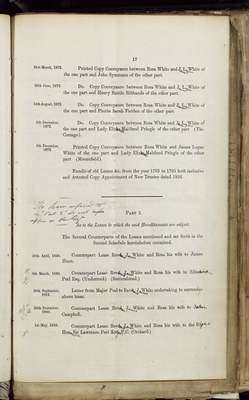 17
25th March, 1872. Printed Copy Conveyance between Rosa White and J. L. White of
the one part and John Symmons of the other part.
26th June, 1872. Do. Copy Conveyance between Rosa White and J. L. White of
the one part and Henry Smith Hibbands of the other part.
14th August, 1872. Do. Copy Conveyance between Rosa White and J. L. White of
the one part and Phœbe Sarah Fielden of the other part.
5th December, 1872. Do. Copy Conveyance between Rosa White and J. L. White of
the one part and Lady Eliza Maitland Pringle of the other part (The
Cottage).
5th December, 1872. Printed Copy Conveyance between Rosa White and James Logan
White of the one part and Lady Eliza Maitland Pringle of the other
part. (Mountfield).
Bundle of old Leases &c. from the year 1763 to 1795 both inclusive
and Attested Copy Appointment of New Trustee dated 1826
The Leases referred to
in Part 2
Part 2.
As to the Leases to which the said Hereditaments are subject.
The Several Counterparts of the Leases mentioned and set forth in the
Second Schedule hereinbefore contained.
24th April, 1850. Counterpart Lease J. White and Rosa his wife to James
Hunt.
9th March, 1860. Counterpart Lease J. White and Rosa his wife to
Peel Esq. (Underrock) (Surrendered.)
10th September, Letter from Major Peel to J. White undertaking to surrender
above lease.
30th December, Counterpart Lease J. White and Rosa his wife to John
Campbell.
1st May, Counterpart Lease J. White and Rosa his wife to the Right
Hon. Sir Lawrence Peel P.C. (Orchard.)